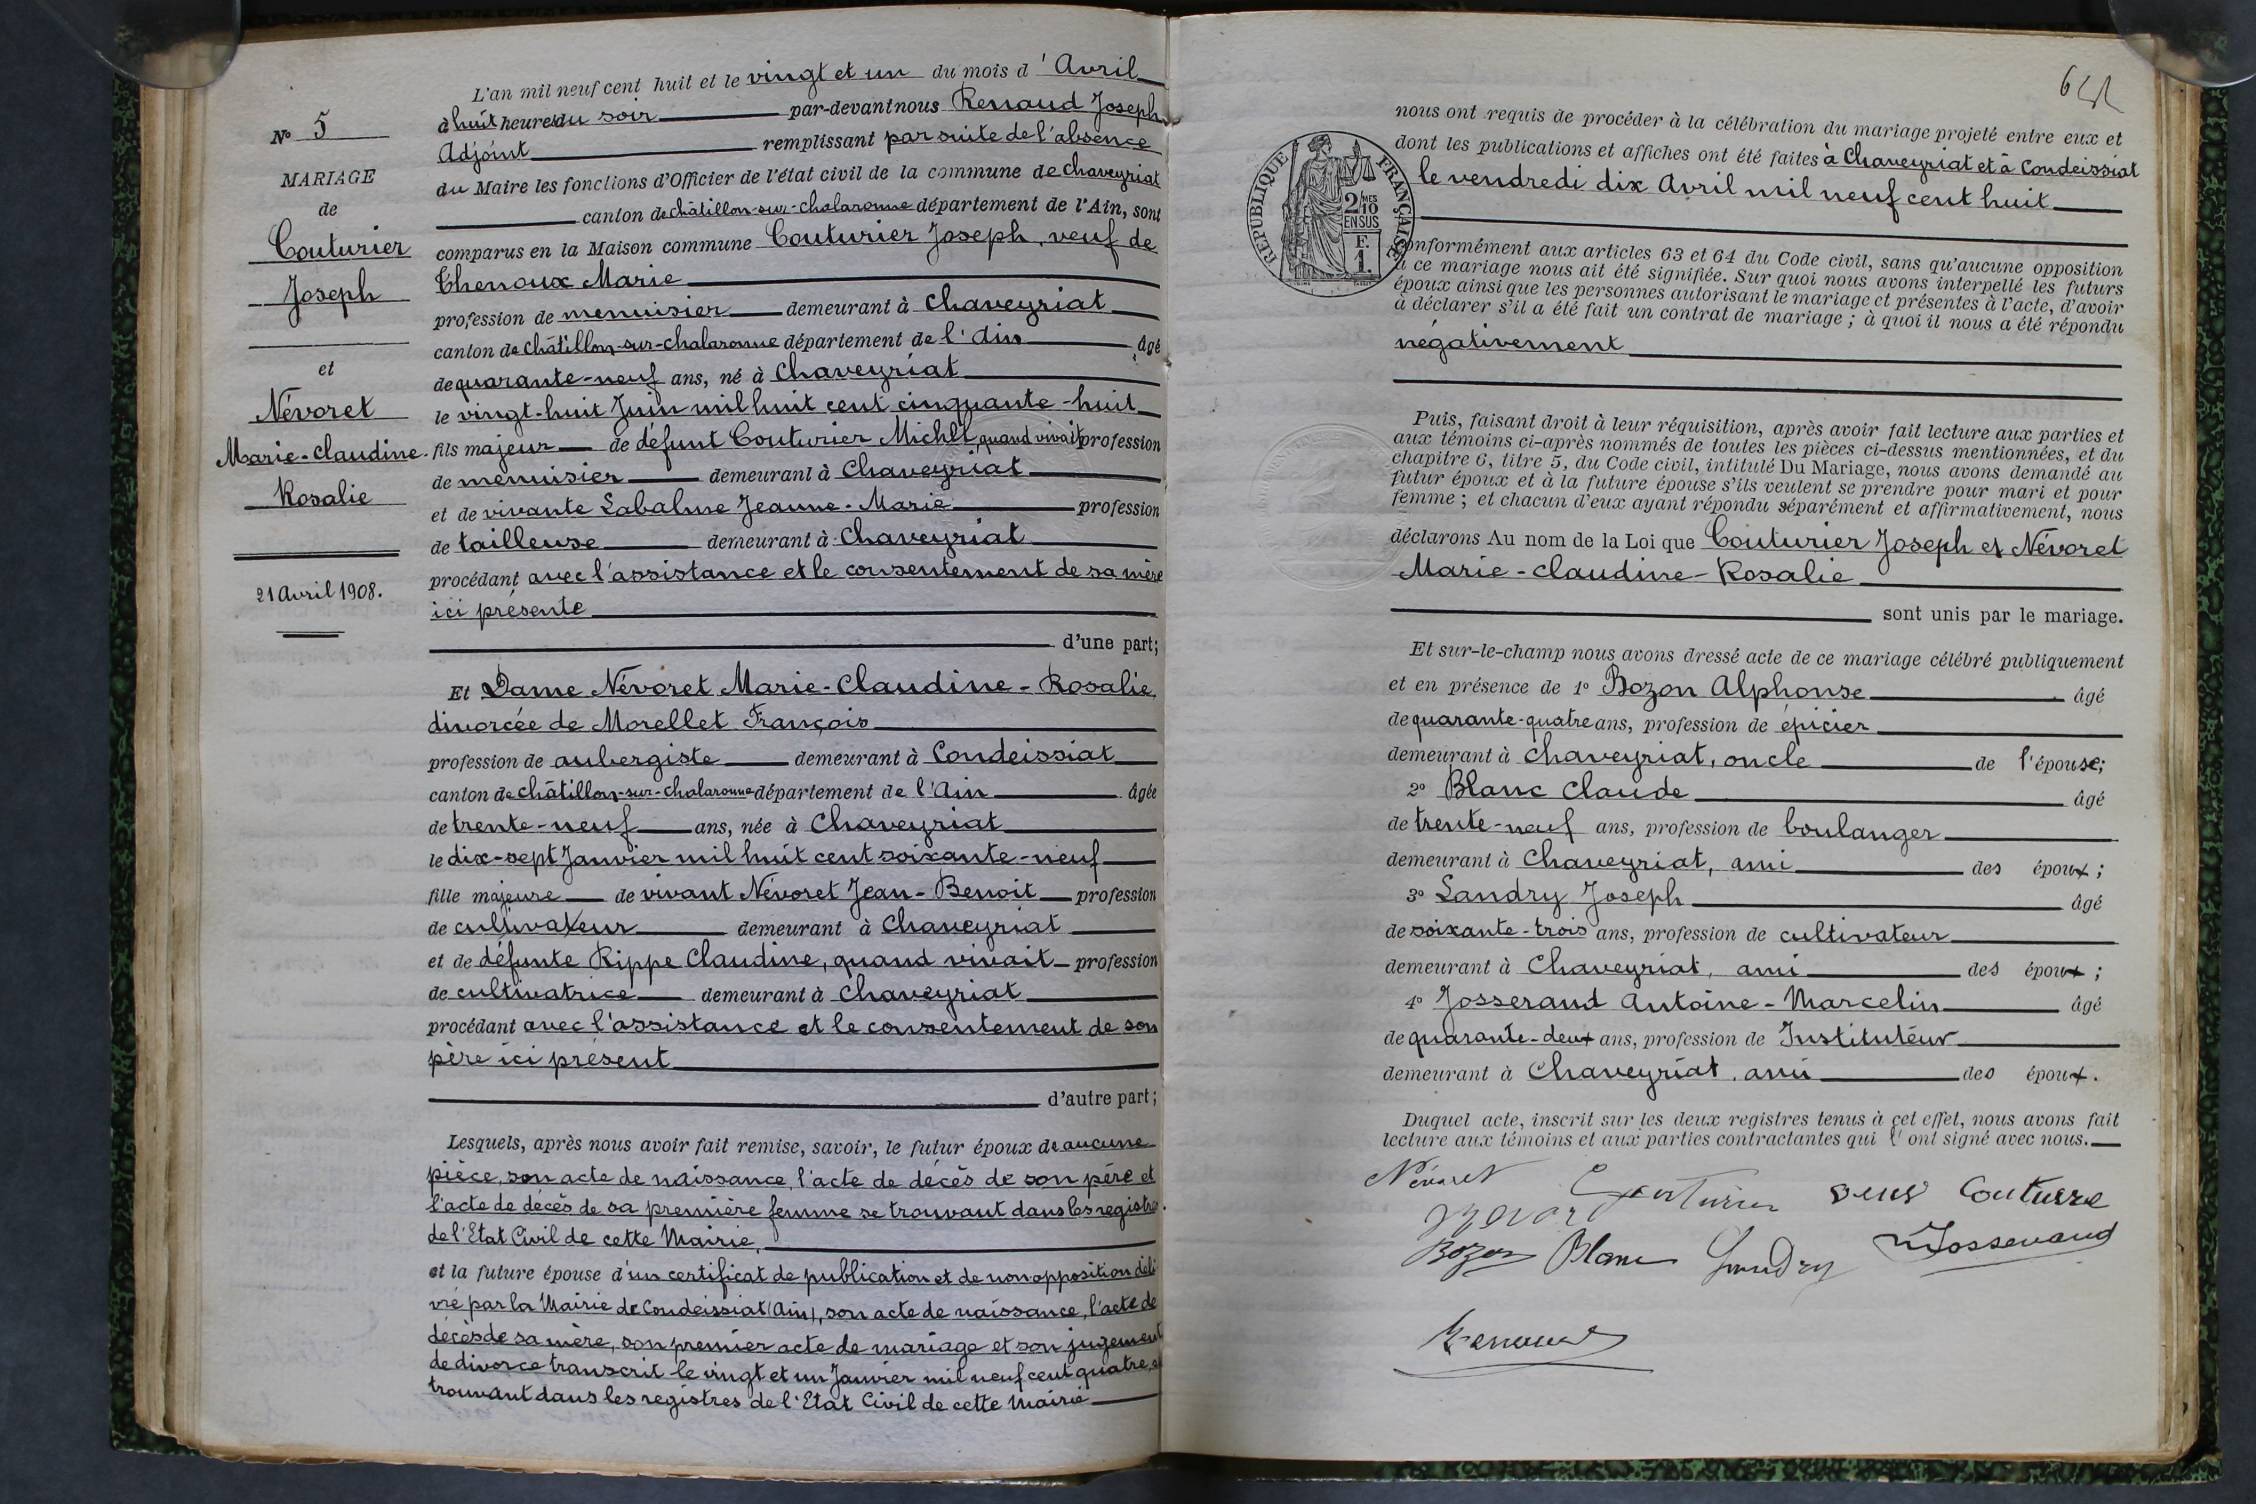 N° 5
MARIAGE
de
Couturier
Joseph
et
Névoret
Marie-Claudine-
Rosalie
21 Avril 1908.
L'an mil neuf cent huit et le vingt et un du mois d'Avril
à huit heures du soir par-devant nous Renaud Joseph
Adjoint remplissant par suite de l'absence
du Maire les fonctions d'Officier de l'état civil de la commune de Chaveyriat
canton de Châtillon-sur-Chalaronne département de l'Ain, sont
comparus en la Maison commune Couturier Joseph, veuf de
Thenoux Marie
profession de menuisier demeurant à Chaveyriat
canton de Châtillon-sur-Chalaronne département de l'Ain âgé
de quarante-neuf ans, né à Chaveyriat
le vingt-huit Juin mil huit cent cinquante-huit
fils majeur de défunt Couturier Michel quand vivait profession
de menuisier demeurant à Chaveyriat
et de vivante Labalme Jeanne-Marie profession
de tailleuse demeurant à Chaveyriat
procédant avec l'assistance et le consentement de sa mère
ici présente
d'une part;
Et Dame Névoret Marie-Claudine-Rosalie,
divorcée de Morellet François
profession de aubergiste demeurant à Condeissiat
canton de Châtillon-sur-Chalaronne département de l'Ain âgée
de trente-neuf ans, née à Chaveyriat
le dix-sept Janvier mil huit cent soixante-neuf
fille majeure de vivant Névoret Jean-Benoit profession
de cultivateur demeurant à Chaveyriat
et de défunte Rippe Claudine, quand vivait profession
de cultivatrice demeurant à Chaveyriat
procédant avec l'assistance et le consentement de son
père ici présent
d'autre part;
Lesquels, après nous avoir fait remise, savoir, le futur époux de aucune
pièce, son acte de naissance, l'acte de décès de son père et
l'acte de décès de sa première femme se trouvant dans les registres
de l'Etat Civil de cette Mairie,
et la future épouse d'un certificat de publication et de non opposition déli
vré par la Mairie de Condeissiat (Ain), son acte de naissance, l'acte de
décès de sa mère, son premier acte de mariage et son jugement
de divorce transcrit le vingt et un Janvier mil neuf cent quatre, se
trouvant dans les registres de l'Etat Civil de cette Mairie
nous ont requis de procéder à la célébration du mariage projeté entre eux et
dont les publications et affiches ont été faites à Chaveyriat et à Condeissiat
le vendredi dix Avril mil neuf cent huit
RÉPUBLIQUE FRANÇAISE
2/10 MES
EN SUS
F.
1.
conformément aux articles 63 et 64 du Code civil, sans qu'aucune opposition
à ce mariage nous ait été signifiée. Sur quoi nous avons interpellé les futurs
époux ainsi que les personnes autorisant le mariage et présentes à l'acte, d'avoir
à déclarer s'il a été fait un contrat de mariage; à quoi il nous a été répondu
négativement
Puis, faisant droit à leur réquisition, après avoir fait lecture aux parties et
aux témoins ci-après nommés de toutes les pièces ci-dessus mentionnées, et du
chapitre 6, titre 5, du Code civil, intitulé Du Mariage, nous avons demandé au
futur époux et à la future épouse s'ils veulent se prendre pour mari et pour
femme; et chacun d'eux ayant répondu séparément et affirmativement, nous
déclarons Au nom de la Loi que Couturier Joseph et Névoret
Marie-Claudine-Rosalie
sont unis par le mariage.
Et sur-le-champ nous avons dressé acte de ce mariage célébré publiquement
et en présence de 1° Bozon Alphonse âgé
de quarante-quatre ans, profession de épicier
demeurant à Chaveyriat, oncle de l'épouse;
2° Blanc Claude âgé
de trente-neuf ans, profession de boulanger
demeurant à Chaveyriat, ami des époux;
3° Landry Joseph âgé
de soixante-trois ans, profession de cultivateur
demeurant à Chaveyriat, ami des époux;
4° Josserand Antoine-Marcelin âgé
de quarante-deux ans, profession de Instituteur
demeurant à Chaveyriat, ami des époux.
Duquel acte, inscrit sur les deux registres tenus à cet effet, nous avons fait
lecture aux témoins et aux parties contractantes qui l'ont signé avec nous.
Névoret Couturier Couturre
Bozon Blanc Landry Josserand
Renaud